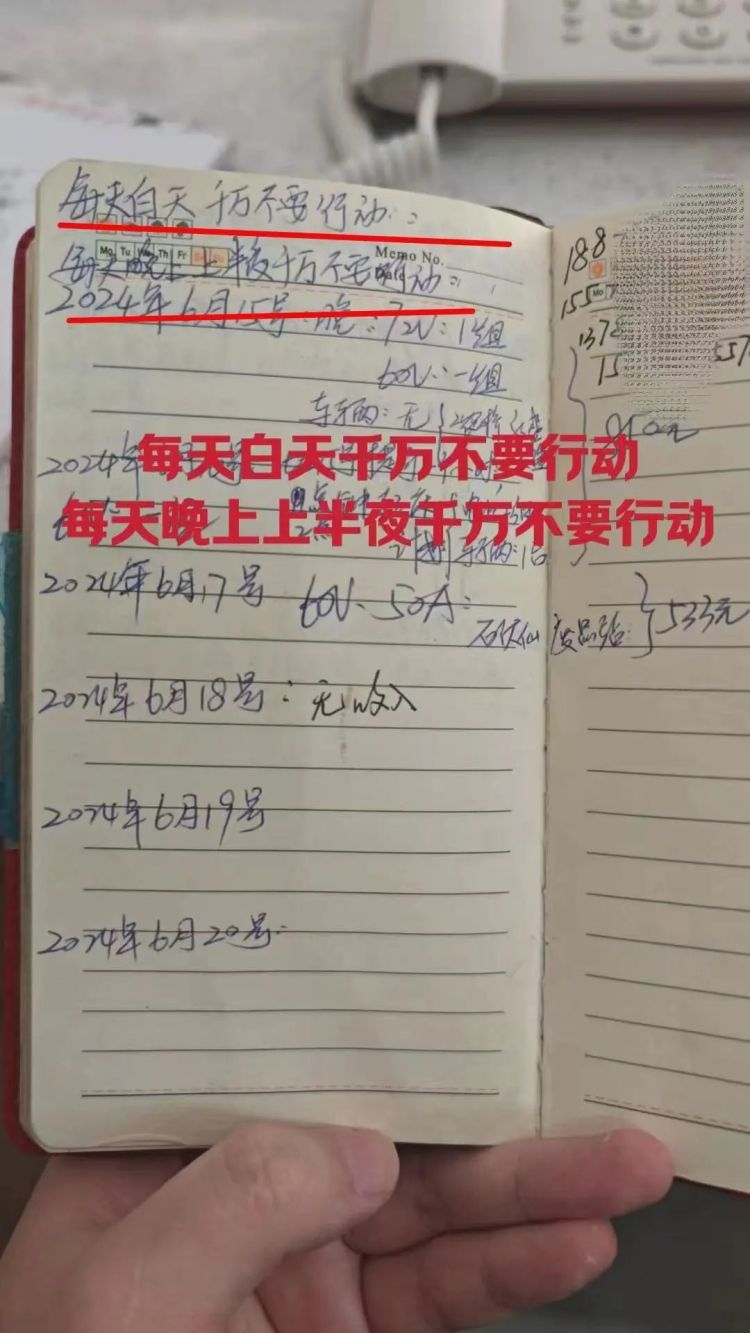 每天白天千万不要行动:
Mo Tu We Th Fr
Memo No.
每天晚上上半夜千万不要行动:
2024年6月15号 晚:72V:1组
60V:一组
车辆:无
2024年
每天白天千万不要行动
每天晚上上半夜千万不要行动
车辆:1台
2024年6月17号 60V、50A:
废品站: 533元
2024年6月18号:无收入
2024年6月19号
2024年6月20号:
188
155
Mo
1378
15
557